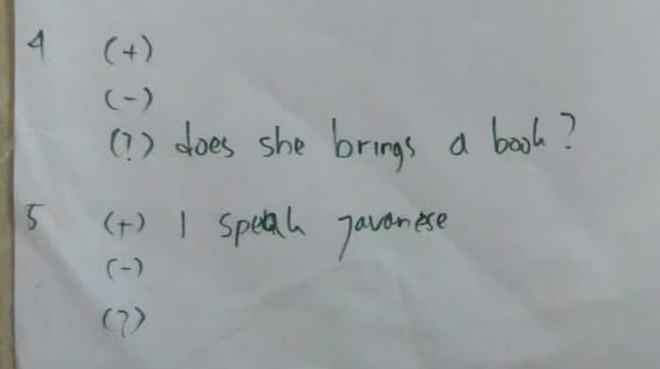 4 (+)
(-)
(?) does she brings a book?
5 (+) I speak javanese
(-)
(?)